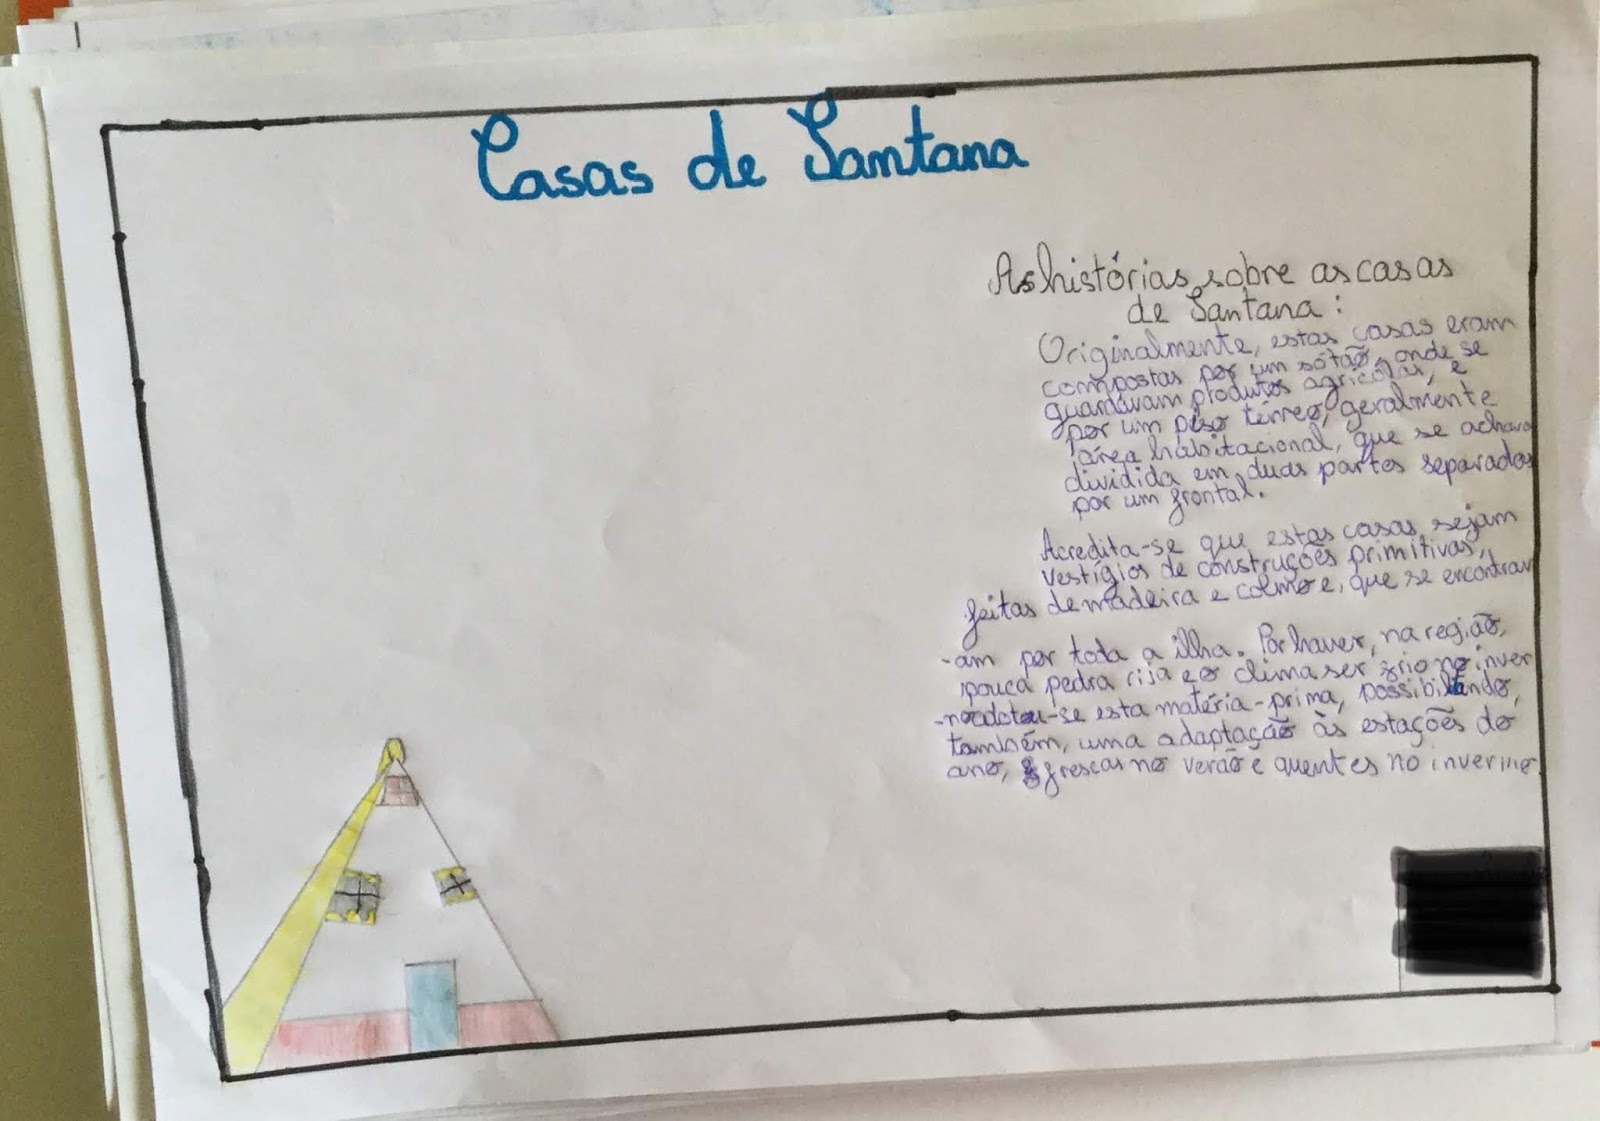 Casas de Santana
As histórias sobre as casas
de Santana:
Originalmente, estas casas eram
compostas por um sótão, onde se
guardavam produtos agrícolas, e
por um piso térreo, geralmente
área habitacional, que se achava
dividida em duas partes separadas
por um frontal.
Acredita-se que estas casas sejam
vestígios de construções primitivas,
feitas de madeira e colmo e, que se encontrav
-am por toda a ilha. Por haver, na região,
pouca pedra rija e o clima ser frio no inver
-no adotou-se esta matéria-prima, possibilitando,
também, uma adaptação às estações do
ano, frescas no verão e quentes no inverno